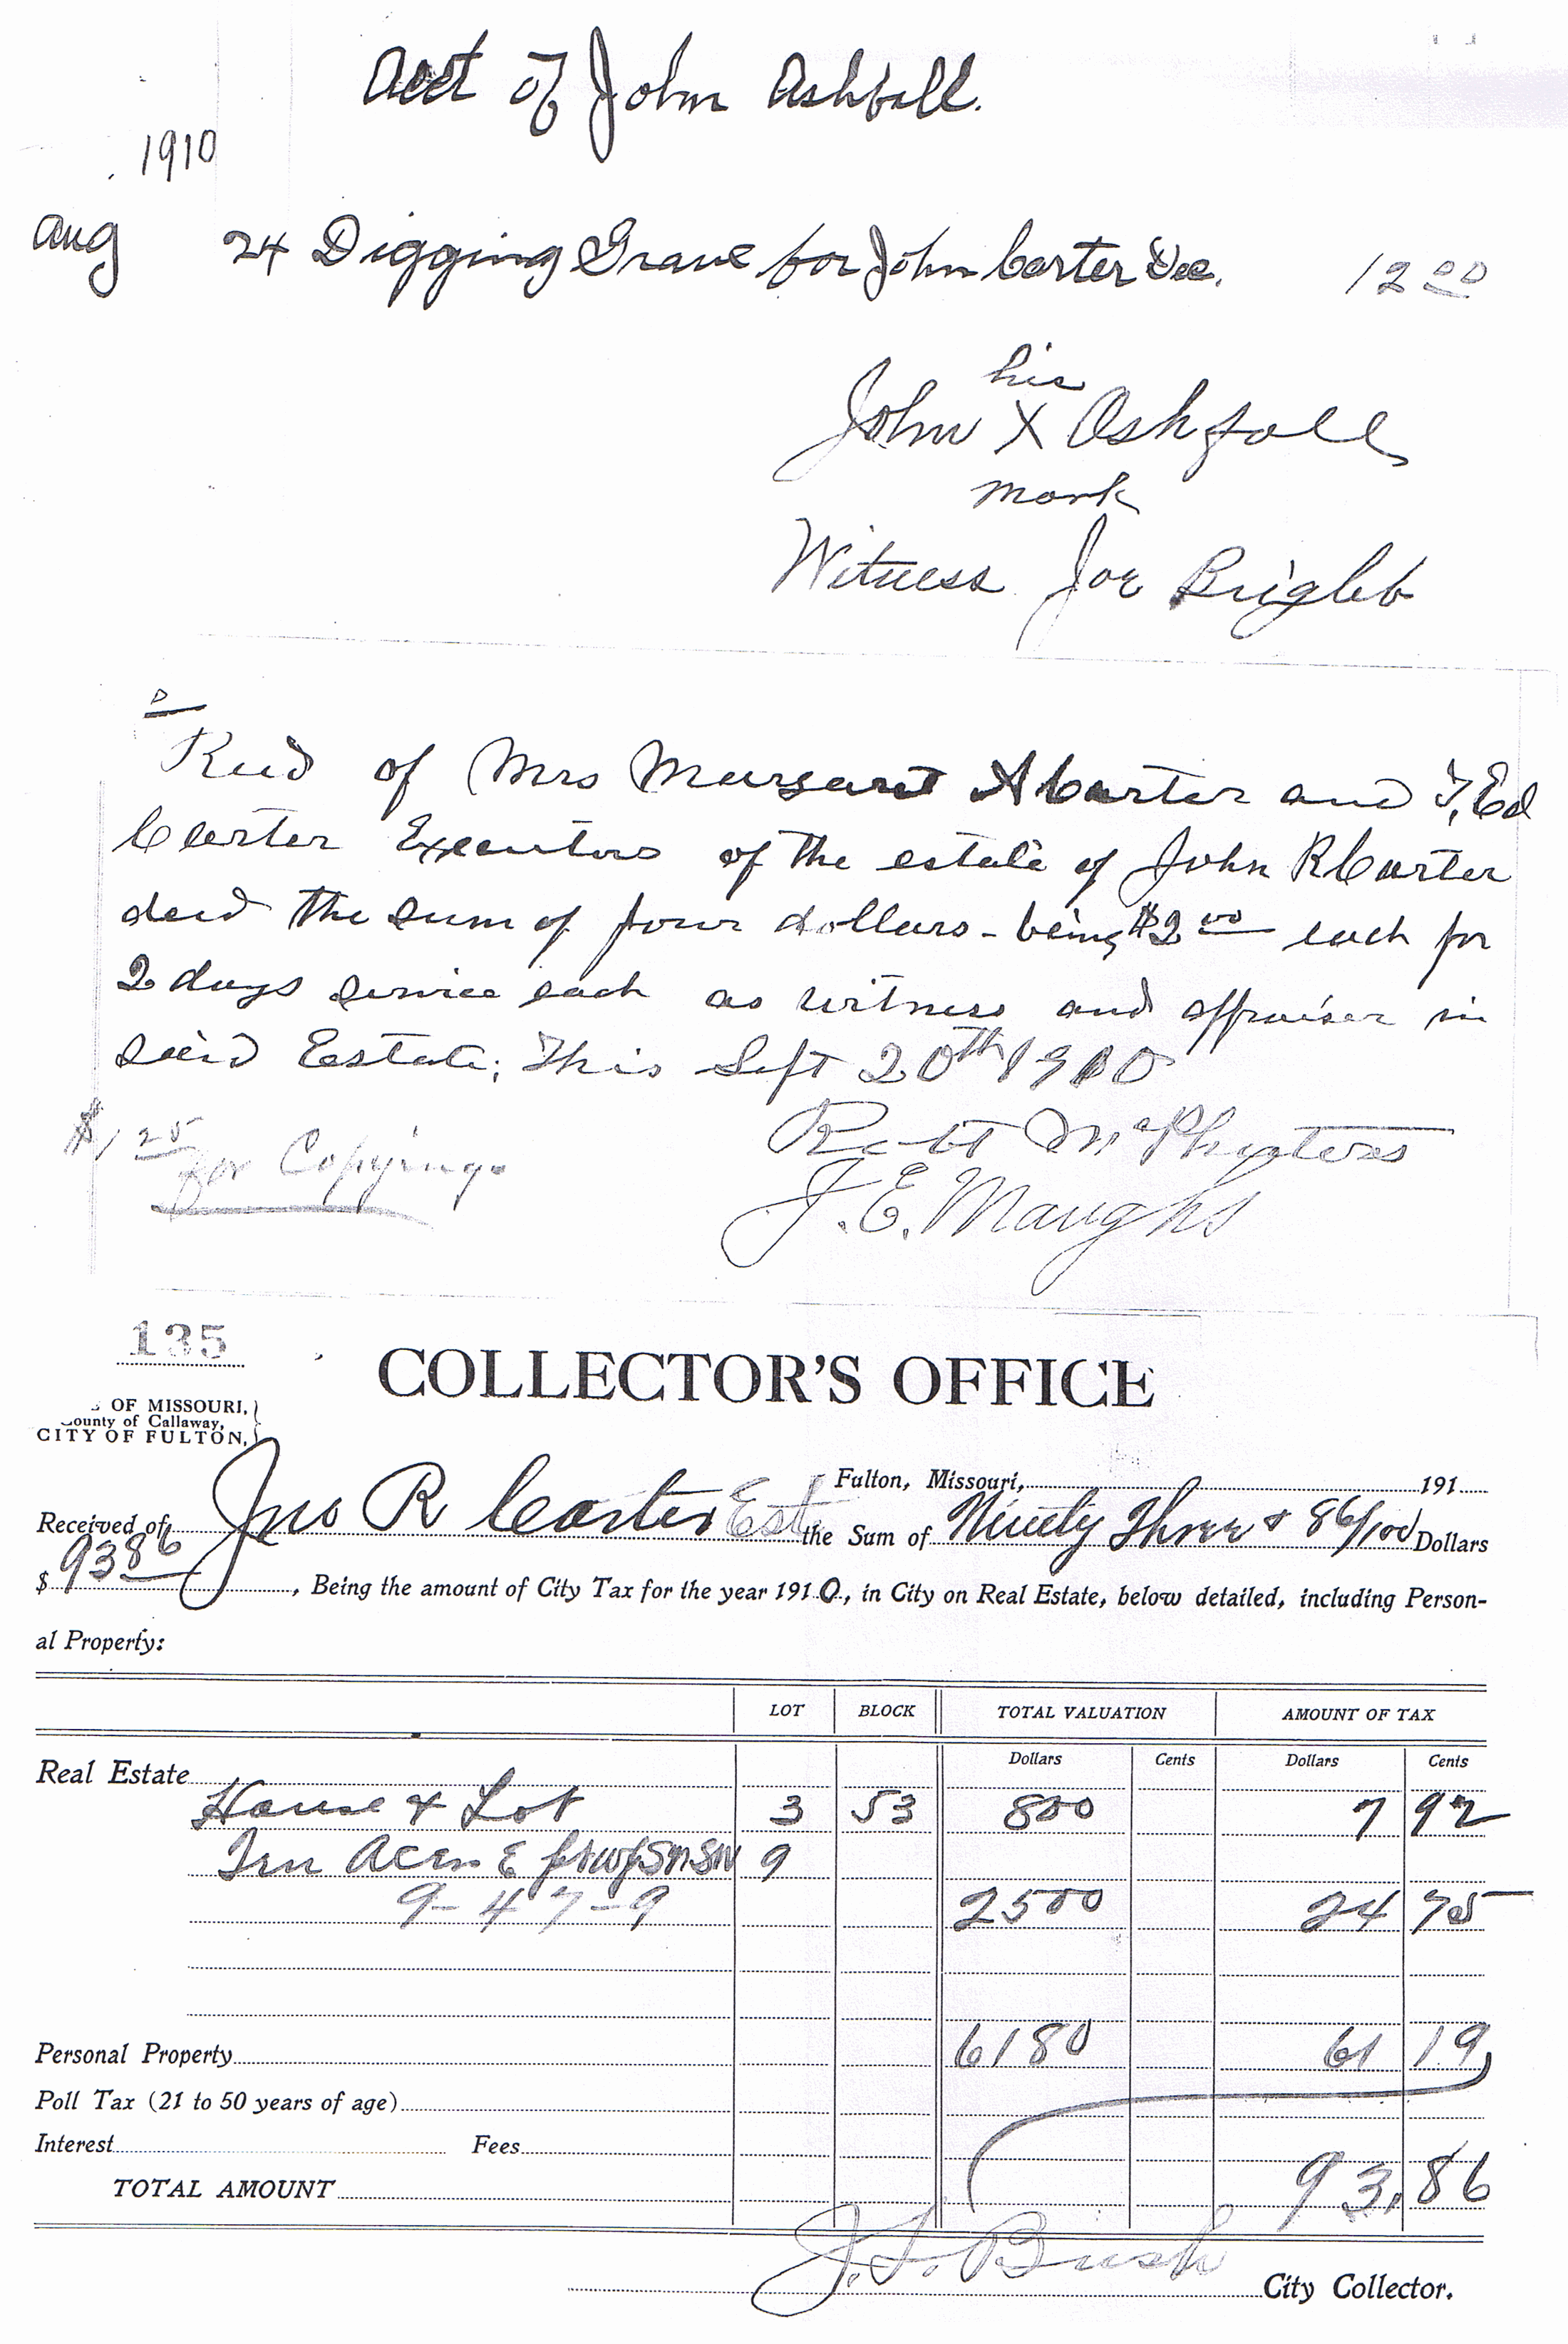 Acct of John Ashfall.
1910
Aug 24 Digging Grave for John Carter Dec. 12 00
his
John X Ashfall
mark
Witness Joe
Recd of Mrs Margaret A Carter and T, Ed
Carter Executors of the estate of John R Carter
decd the sum of four dollars - being $2 00 each for
2 days service each as witness and appraiser in
said Estate; This Sept 20th 1910
$1 25
for Copying
Robt McPheeters
J. E. Maughs
135
COLLECTOR'S OFFICE
OF MISSOURI,
County of Callaway,
CITY OF FULTON,
Fulton, Missouri, 191
Received of Jno R Carter Est the Sum of Ninety Three & 86/100 Dollars
$ 93 86, Being the amount of City Tax for the year 1910, in City on Real Estate, below detailed, including Person-
al Property:
LOT BLOCK TOTAL VALUATION AMOUNT OF TAX
Dollars Cents Dollars Cents
Real Estate
House & Lot 3 53 800 7 92
Ten Acres E 9
9-47-9 2500 24 75
Personal Property 6180 61 19
Poll Tax (21 to 50 years of age)
Interest Fees
TOTAL AMOUNT 93.86
Bush
City Collector.